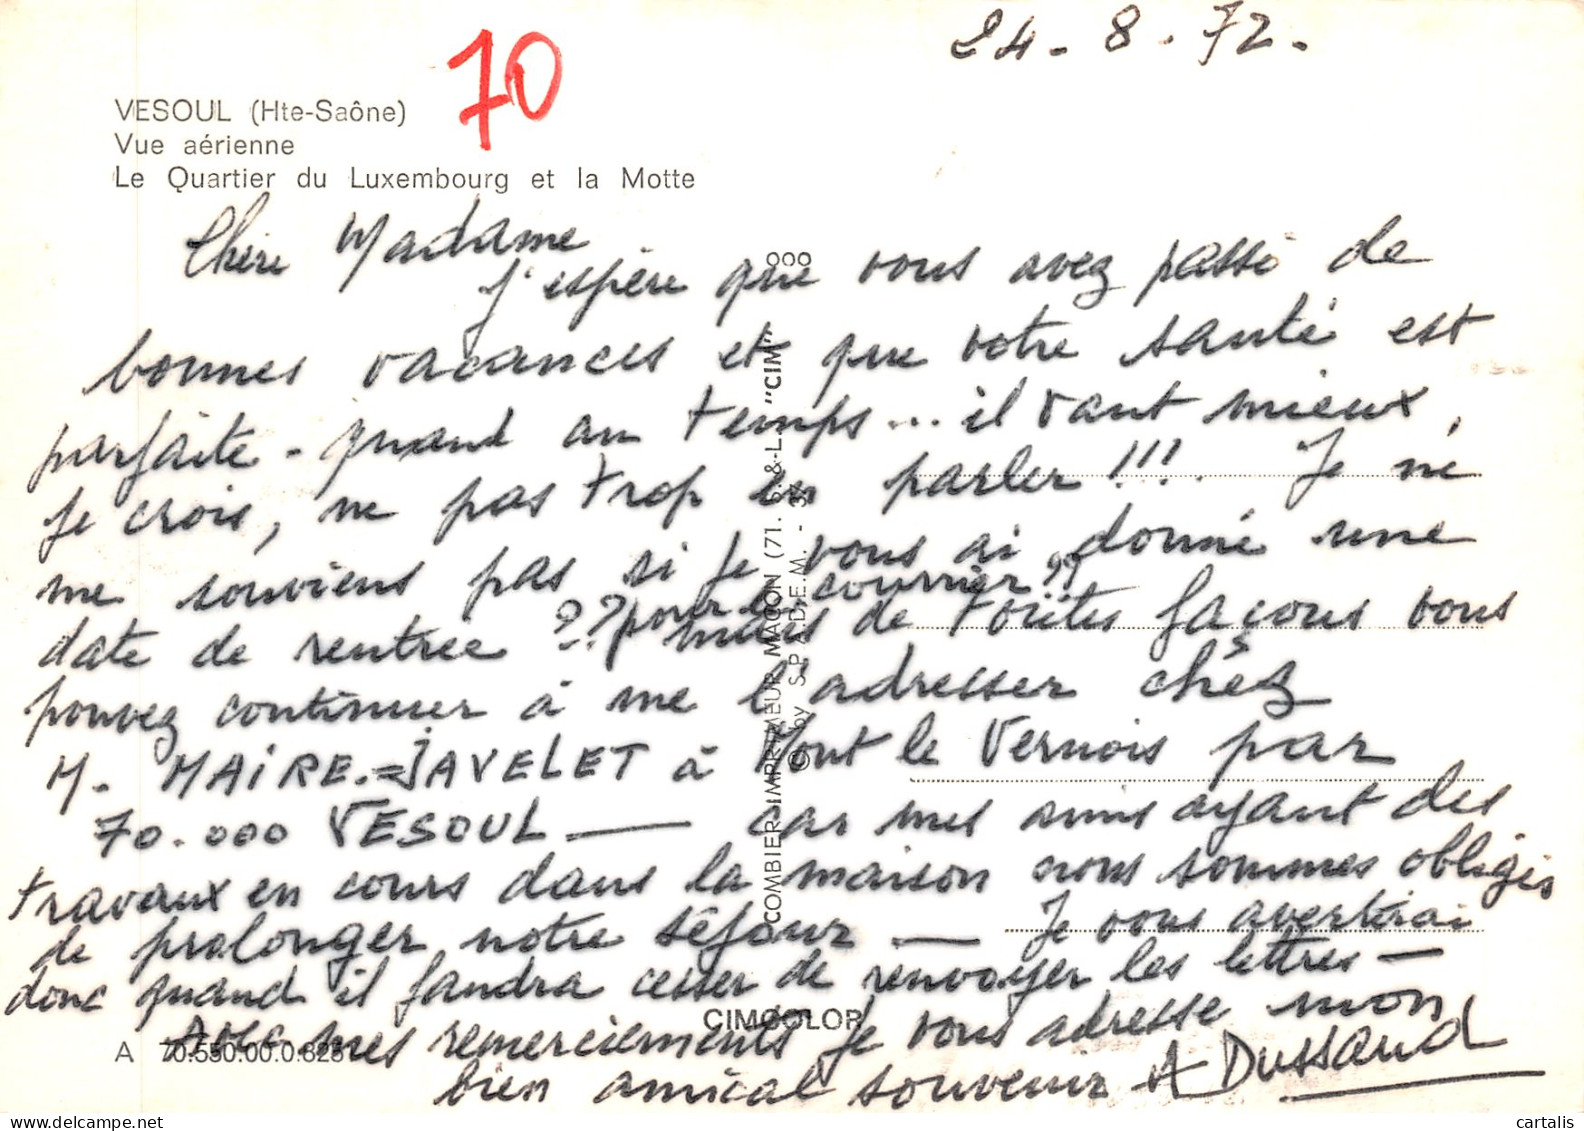 24-8.72.
70
VESOUL (Hte-Saône)
Vue aérienne
Le Quartier du Luxembourg et la Motte
Chère Madame
J'espère que vous avez passé de
bonnes vacances et que votre santé est
parfaite - quand au temps... il vaut mieux,
je crois, ne pas trop en parler!!! Je ne
me souviens pas si je vous ai donné une
date de rentrée ?? pour le courrier ??
mais de toutes façons vous
pouvez continuer à me l'adresser chez
M. MAIRE-JAVELET à Mont le Vernois par
70.000 VESOUL — car mes amis ayant des
travaux en cours dans la maison nous sommes obligés
de prolonger notre séjour — Je vous avertirai
donc quand il faudra cesser de renvoyer les lettres —
Avec mes remerciements je vous adresse mon
bien amical souvenir A Dussaud
COMBIER IMPRIMEUR MACON (71. S-&-L.) "CIM"
© by S.P.A.D.E.M. -
CIMCOLOR
A 70.550.00.0.
cartalis